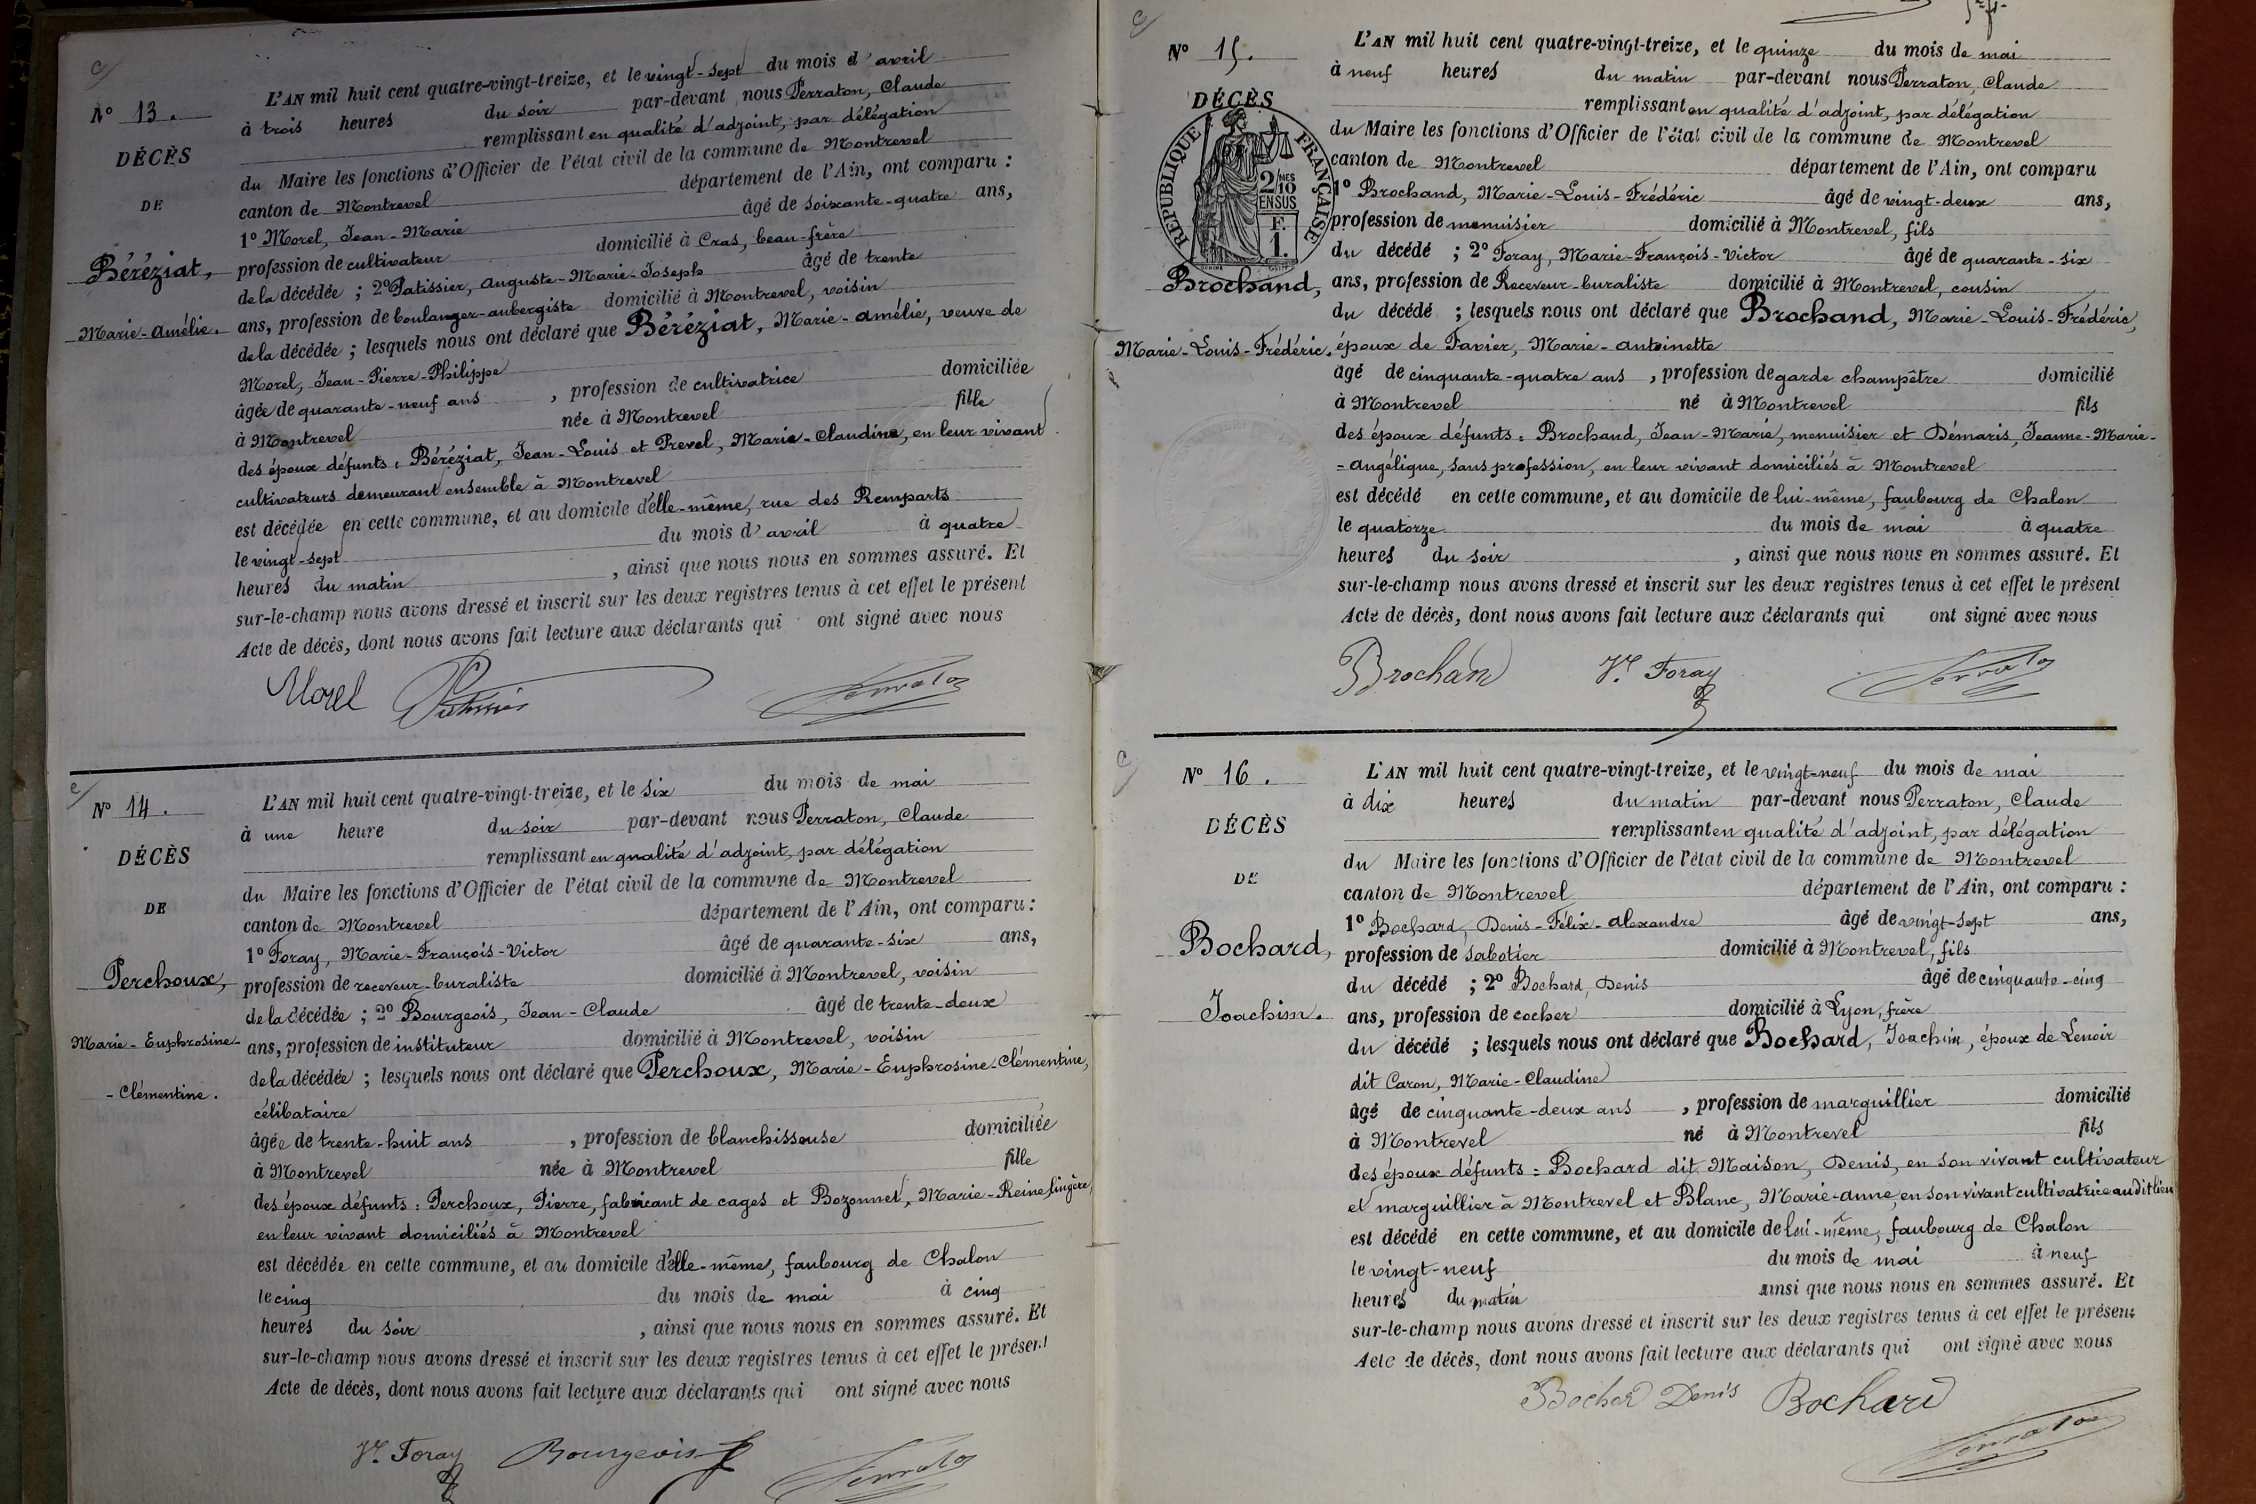 N° 13.
DÉCÈS
DE
Béréziat,
Marie-Amélie.
L'AN mil huit cent quatre-vingt-treize, et le vingt-sept du mois d'avril
à trois heures du soir par-devant nous Perraton, Claude
remplissant en qualité d'adjoint, par délégation
du Maire les fonctions d'Officier de l'état civil de la commune de Montrevel
canton de Montrevel département de l'Ain, ont comparu :
1° Morel, Jean-Marie âgé de soixante-quatre ans,
profession de cultivateur domicilié à Cras, beau-frère
de la décédée ; 2° Patissier, Auguste-Marie-Joseph âgé de trente
ans, profession de boulanger-aubergiste domicilié à Montrevel, voisin
de la décédée ; lesquels nous ont déclaré que Béréziat, Marie-Amélie, veuve de
Morel, Jean-Pierre-Philippe
âgée de quarante-neuf ans, profession de cultivatrice domiciliée
à Montrevel née à Montrevel fille
des époux défunts : Béréziat, Jean-Louis et Prevel, Marie-Claudine, en leur vivant
cultivateurs demeurant ensemble à Montrevel
est décédée en cette commune, et au domicile d'elle-même, rue des Remparts
le vingt-sept du mois d'avril à quatre
heures du matin, ainsi que nous nous en sommes assuré. Et
sur-le-champ nous avons dressé et inscrit sur les deux registres tenus à cet effet le présent
Acte de décès, dont nous avons fait lecture aux déclarants qui ont signé avec nous
Morel Patissier Perraton
N° 14.
DÉCÈS
DE
Perchoux,
Marie-Euphrosine-
-Clémentine.
L'AN mil huit cent quatre-vingt-treize, et le six du mois de mai
à une heure du soir par-devant nous Perraton, Claude
remplissant en qualité d'adjoint, par délégation
du Maire les fonctions d'Officier de l'état civil de la commune de Montrevel
canton de Montrevel département de l'Ain, ont comparu :
1° Foray, Marie-François-Victor âgé de quarante-six ans,
profession de receveur-buraliste domicilié à Montrevel, voisin
de la décédée ; 2° Bourgeois, Jean-Claude âgé de trente-deux
ans, profession de instituteur domicilié à Montrevel, voisin
de la décédée ; lesquels nous ont déclaré que Perchoux, Marie-Euphrosine-Clémentine,
célibataire
âgée de trente-huit ans, profession de blanchisseuse domiciliée
à Montrevel née à Montrevel fille
des époux défunts : Perchoux, Pierre, fabricant de cages et Bozonnet, Marie-Reine, lingère,
en leur vivant domiciliés à Montrevel
est décédée en cette commune, et au domicile d'elle-même, faubourg de Chalon
le cinq du mois de mai à cinq
heures du soir, ainsi que nous nous en sommes assuré. Et
sur-le-champ nous avons dressé et inscrit sur les deux registres tenus à cet effet le présent
Acte de décès, dont nous avons fait lecture aux déclarants qui ont signé avec nous
Vr. Foray Bourgeois Perraton
N° 15.
DÉCÈS
RÉPUBLIQUE FRANÇAISE
2/10 MES
EN SUS
1 F.
Brochand,
Marie-Louis-Frédéric.
L'AN mil huit cent quatre-vingt-treize, et le quinze du mois de mai
à neuf heures du matin par-devant nous Perraton, Claude
remplissant en qualité d'adjoint, par délégation
du Maire les fonctions d'Officier de l'état civil de la commune de Montrevel
canton de Montrevel département de l'Ain, ont comparu
1° Brochand, Marie-Louis-Frédéric âgé de vingt-deux ans,
profession de menuisier domicilié à Montrevel, fils
du décédé ; 2° Foray, Marie-François-Victor âgé de quarante-six
ans, profession de Receveur-buraliste domicilié à Montrevel, cousin
du décédé ; lesquels nous ont déclaré que Brochand, Marie-Louis-Frédéric,
époux de Favier, Marie-Antoinette
âgé de cinquante-quatre ans, profession de garde champêtre domicilié
à Montrevel né à Montrevel fils
des époux défunts : Brochand, Jean-Marie, menuisier et Démaris, Jeanne-Marie-
-Angélique, sans profession, en leur vivant domiciliés à Montrevel
est décédé en cette commune, et au domicile de lui-même, faubourg de Chalon
le quatorze du mois de mai à quatre
heures du soir, ainsi que nous nous en sommes assuré. Et
sur-le-champ nous avons dressé et inscrit sur les deux registres tenus à cet effet le présent
Acte de décès, dont nous avons fait lecture aux déclarants qui ont signé avec nous
Brochand Vr. Foray Perraton
N° 16.
DÉCÈS
DE
Bochard,
Joachim.
L'AN mil huit cent quatre-vingt-treize, et le vingt-neuf du mois de mai
à dix heures du matin par-devant nous Perraton, Claude
remplissant en qualité d'adjoint, par délégation
du Maire les fonctions d'Officier de l'état civil de la commune de Montrevel
canton de Montrevel département de l'Ain, ont comparu :
1° Bochard, Denis-Félix-Alexandre âgé de vingt-sept ans,
profession de sabotier domicilié à Montrevel, fils
du décédé ; 2° Bochard, Denis âgé de cinquante-cinq
ans, profession de cocher domicilié à Lyon, frère
du décédé ; lesquels nous ont déclaré que Bochard, Joachim, époux de Lenoir
dit Caron, Marie-Claudine
âgé de cinquante-deux ans, profession de marguillier domicilié
à Montrevel né à Montrevel fils
des époux défunts : Bochard dit Maison, Denis, en son vivant cultivateur
et marguillier à Montrevel et Blanc, Marie-Anne, en son vivant cultivatrice audit lieu
est décédé en cette commune, et au domicile de lui-même, faubourg de Chalon
le vingt-neuf du mois de mai à neuf
heures du matin ainsi que nous nous en sommes assuré. Et
sur-le-champ nous avons dressé et inscrit sur les deux registres tenus à cet effet le présent
Acte de décès, dont nous avons fait lecture aux déclarants qui ont signé avec nous
Bochard Denis Bochard
Perraton